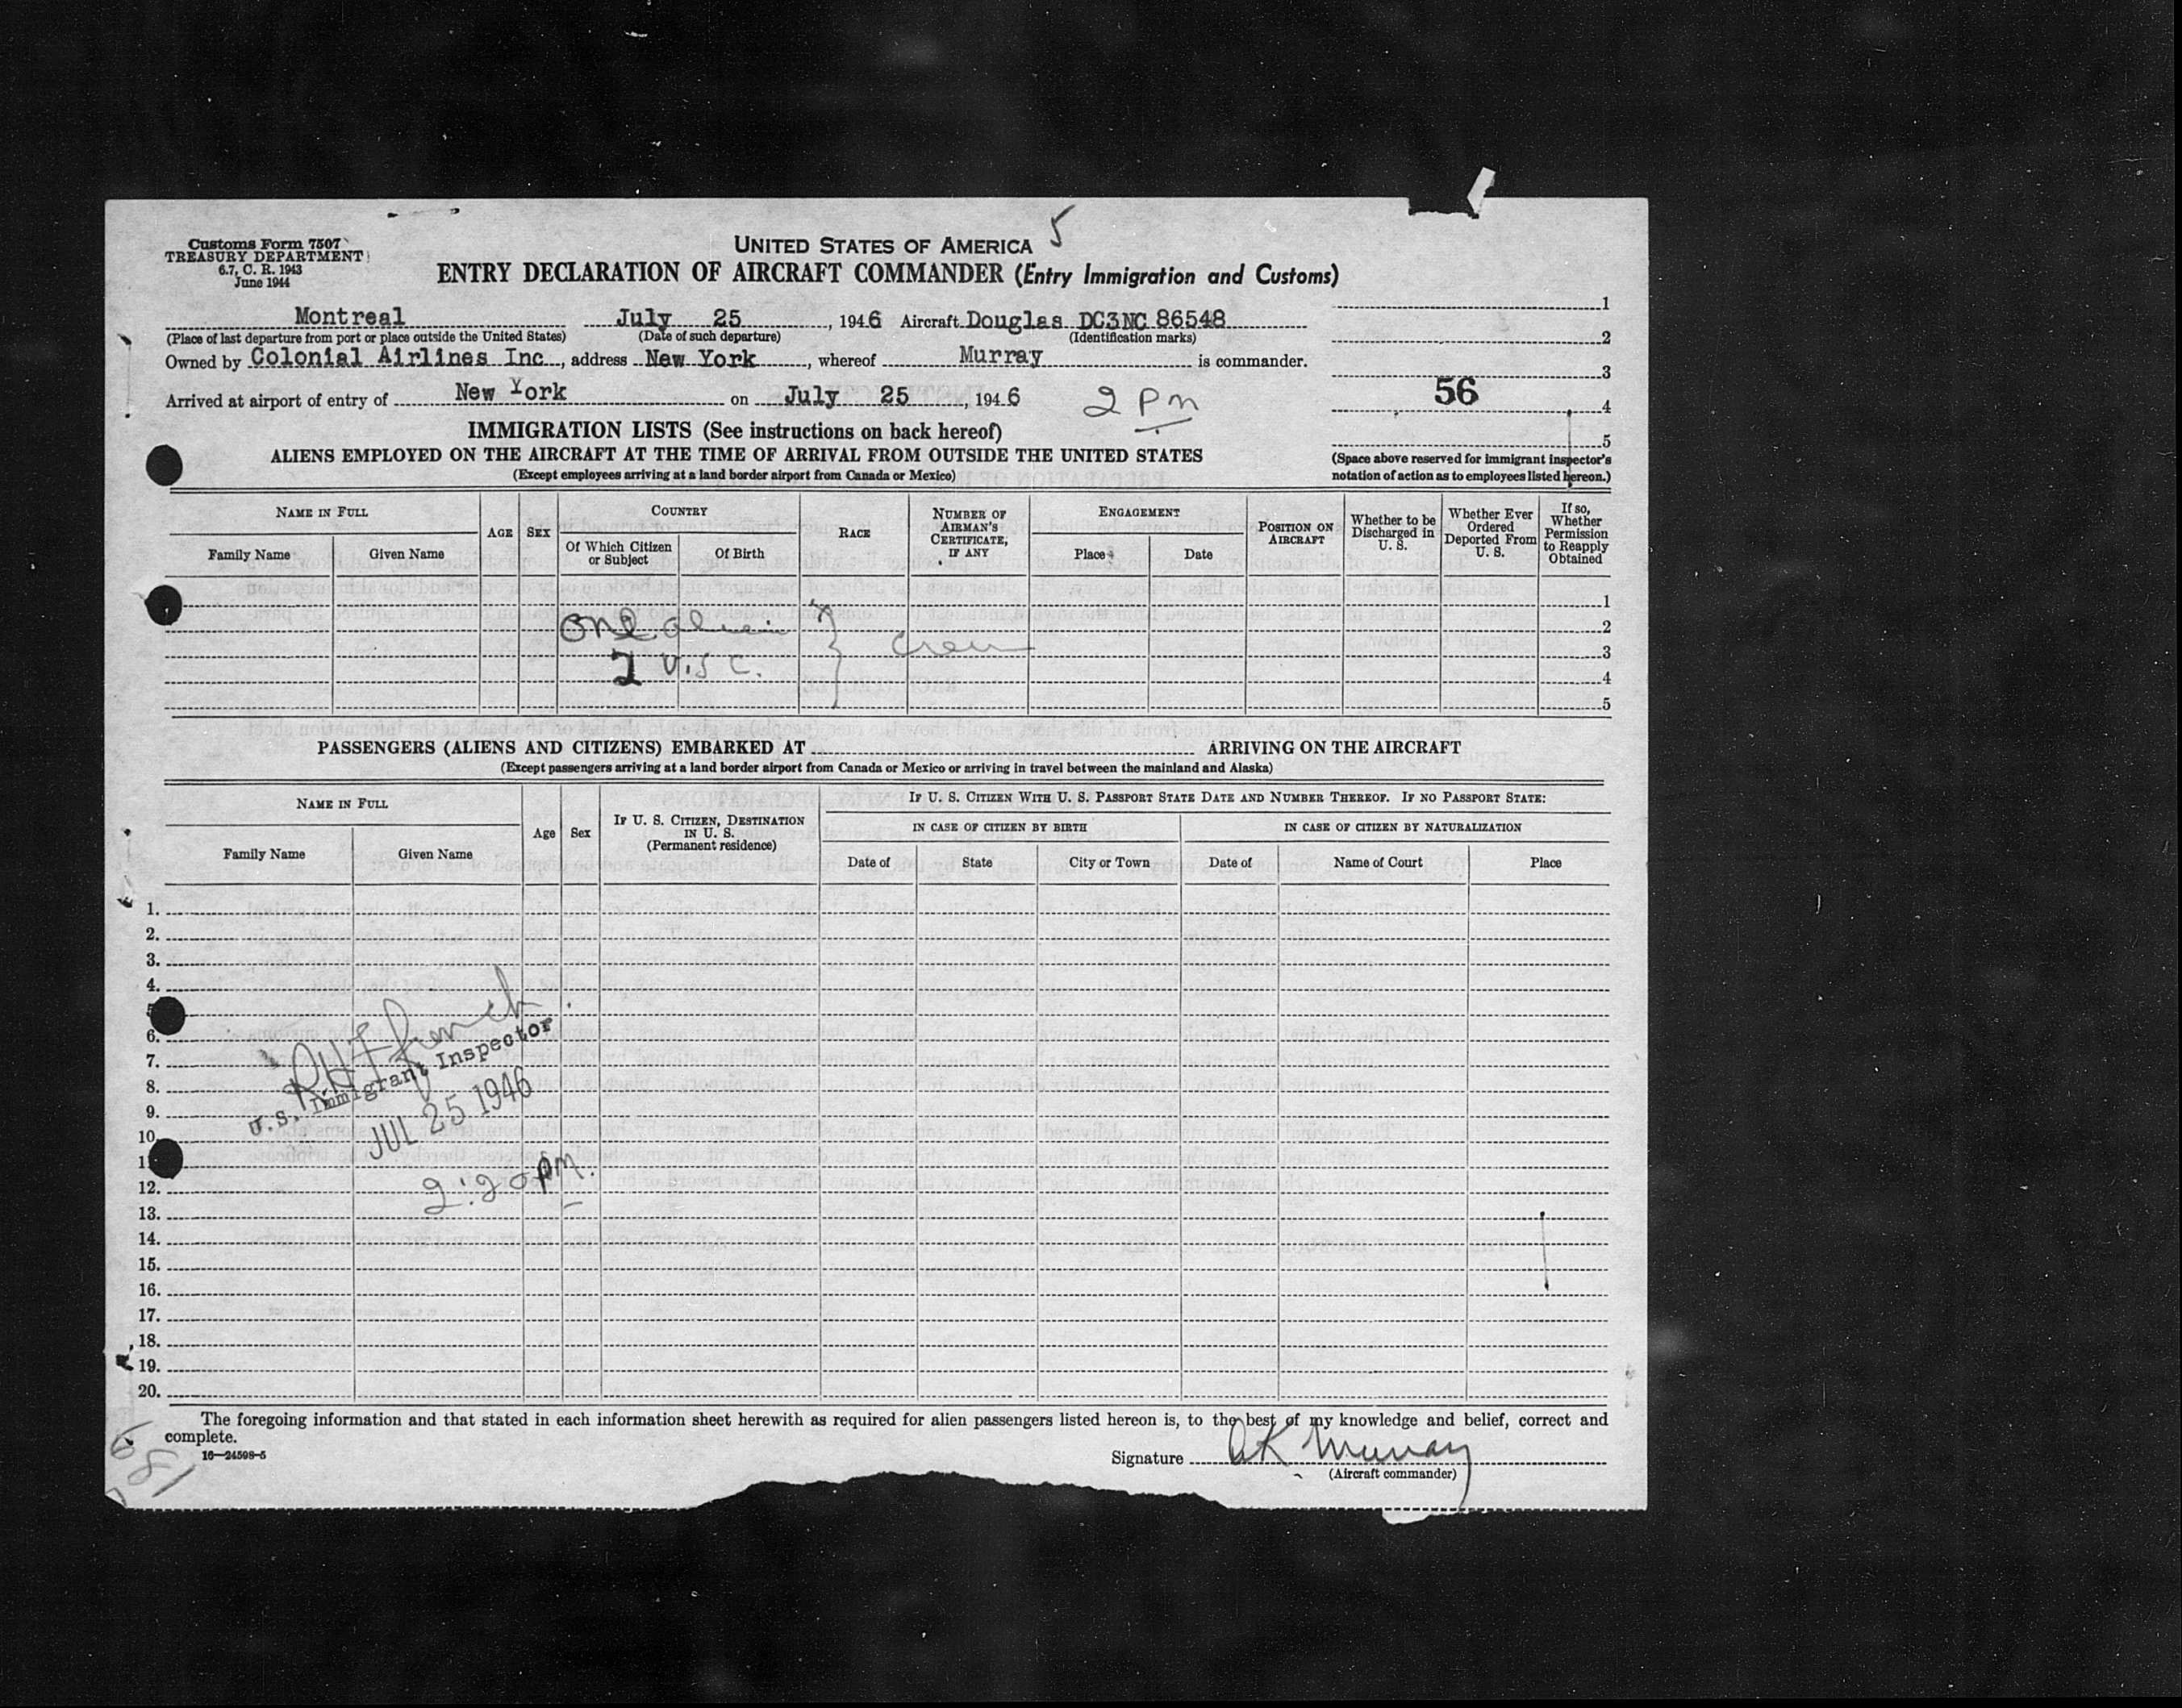 5
Customs Form 7507
TREASURY DEPARTMENT
6.7, C. R. 1943
June 1944
UNITED STATES OF AMERICA
ENTRY DECLARATION OF AIRCRAFT COMMANDER (Entry Immigration and Customs)
Montreal July 25, 1946 Aircraft Douglas DC3NC 86548
(Place of last departure from port or place outside the United States) (Date of such departure) (Identification marks)
Owned by Colonial Airlines Inc, address New York, whereof Murray is commander.
Arrived at airport of entry of New York on July 25, 1946 2 PM
1
2
3
56
4
5
(Space above reserved for immigrant inspector's
notation of action as to employees listed hereon.)
IMMIGRATION LISTS (See instructions on back hereof)
ALIENS EMPLOYED ON THE AIRCRAFT AT THE TIME OF ARRIVAL FROM OUTSIDE THE UNITED STATES
(Except employees arriving at a land border airport from Canada or Mexico)
NAME IN FULL
Family Name
Given Name
AGE
SEX
COUNTRY
Of Which Citizen
or Subject
Of Birth
RACE
NUMBER OF
AIRMAN'S
CERTIFICATE,
IF ANY
ENGAGEMENT
Place
Date
POSITION ON
AIRCRAFT
Whether to be
Discharged in
U. S.
Whether Ever
Ordered
Deported From
U. S.
If so,
Whether
Permission
to Reapply
Obtained
1
One alien
2
crew
3
2 U.S C.
4
5
PASSENGERS (ALIENS AND CITIZENS) EMBARKED AT ARRIVING ON THE AIRCRAFT
(Except passengers arriving at a land border airport from Canada or Mexico or arriving in travel between the mainland and Alaska)
NAME IN FULL
Family Name
Given Name
Age
Sex
IF U. S. CITIZEN, DESTINATION
IN U. S.
(Permanent residence)
IF U. S. CITIZEN WITH U. S. PASSPORT STATE DATE AND NUMBER THEREOF. IF NO PASSPORT STATE:
IN CASE OF CITIZEN BY BIRTH
IN CASE OF CITIZEN BY NATURALIZATION
Date of
State
City or Town
Date of
Name of Court
Place
1.
2.
3.
4.
5
6.
7.
8.
9.
10.
11
12.
13.
14.
15.
16.
17.
18.
19.
20.
U.S. Immigrant Inspector
JUL 25 1946
2:20 PM.
The foregoing information and that stated in each information sheet herewith as required for alien passengers listed hereon is, to the best of my knowledge and belief, correct and
complete.
16—24598-5
Signature K Murray
(Aircraft commander)
681